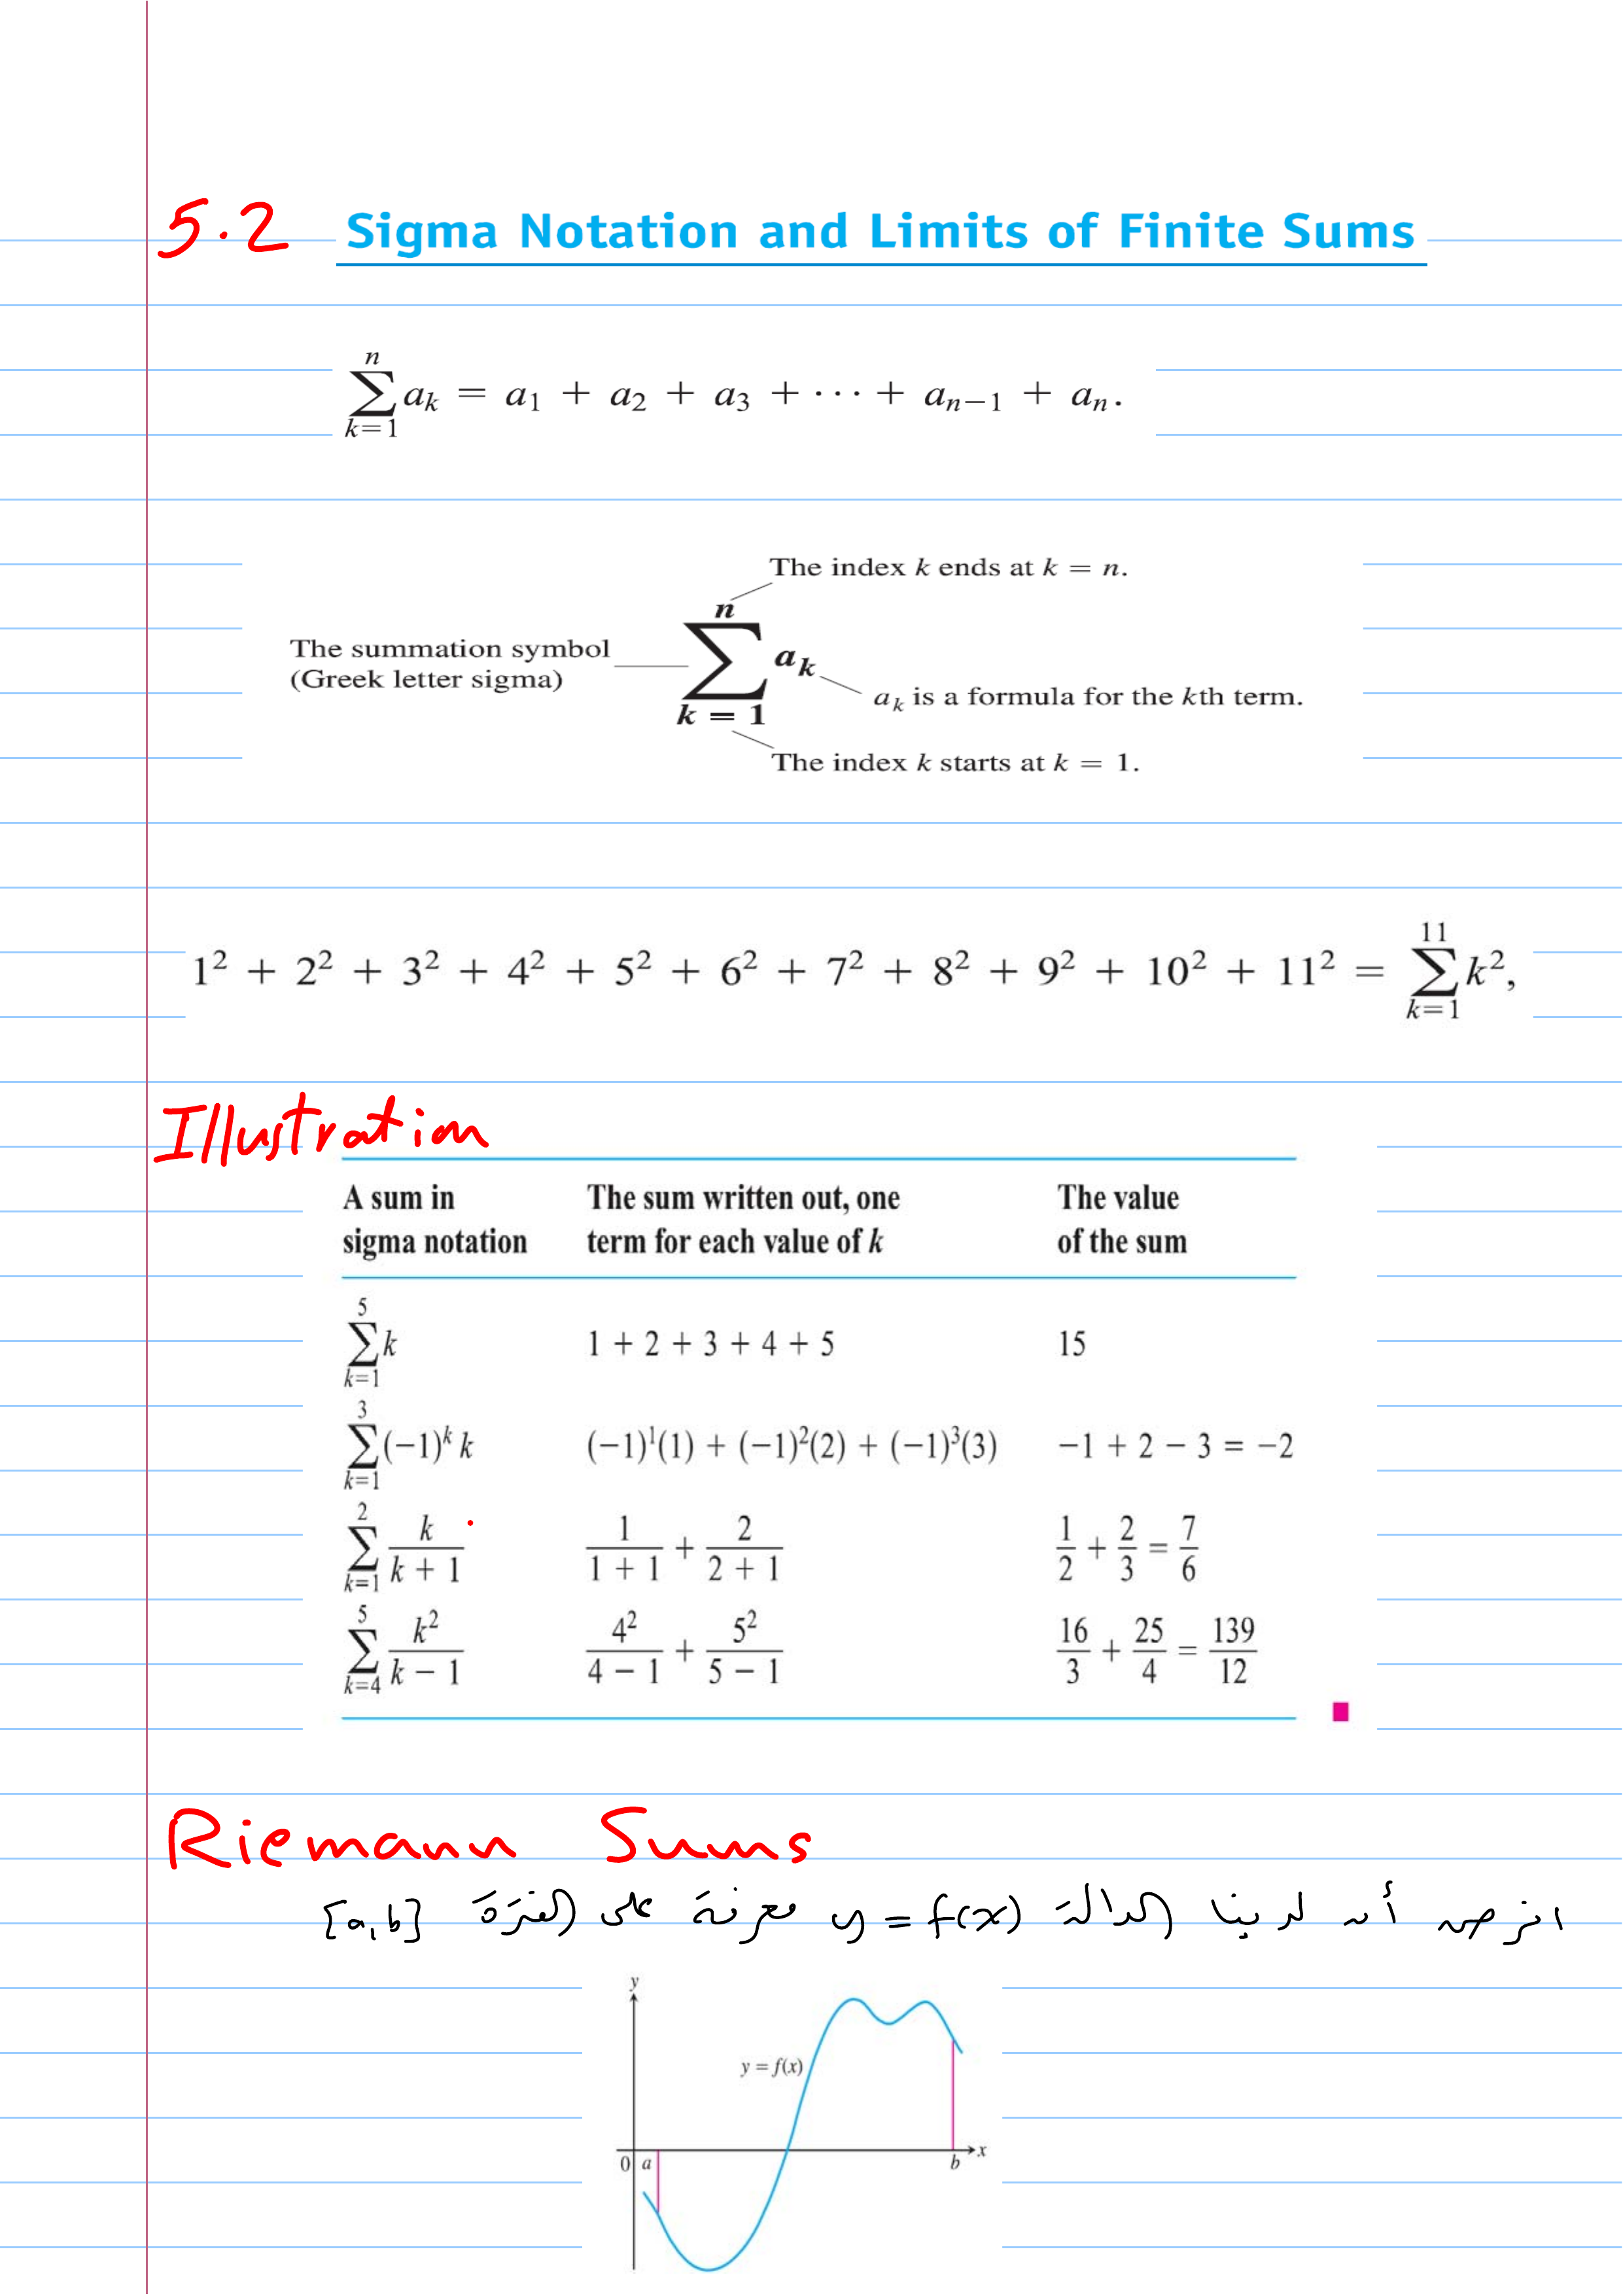 5.2 Sigma Notation and Limits of Finite Sums
n
∑ aₖ = a₁ + a₂ + a₃ + ··· + aₙ₋₁ + aₙ.
k=1
The index k ends at k = n.
The summation symbol
(Greek letter sigma)
n
∑ aₖ
k = 1
aₖ is a formula for the kth term.
The index k starts at k = 1.
11
1² + 2² + 3² + 4² + 5² + 6² + 7² + 8² + 9² + 10² + 11² = ∑ k²,
k=1
Illustration
A sum in sigma notation
The sum written out, one term for each value of k
The value of the sum
5
∑ k 1 + 2 + 3 + 4 + 5 15
k=1
3
∑ (−1)ᵏ k (−1)¹(1) + (−1)²(2) + (−1)³(3) −1 + 2 − 3 = −2
k=1
2
∑ k/(k + 1) 1/(1 + 1) + 2/(2 + 1) 1/2 + 2/3 = 7/6
k=1
5
∑ k²/(k − 1) 4²/(4 − 1) + 5²/(5 − 1) 16/3 + 25/4 = 139/12
k=4
Riemann Sums
افرض أن لدينا الدالة y = f(x) معرفة على الفترة [a,b]
y
y = f(x)
0 a b x